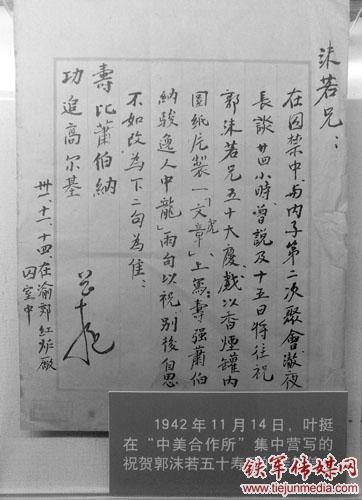 沫若兄：
在囚禁中，与内子第二次聚會，澈夜
長談廿四小時，曾説及十五日將往祝
郭沫若兄五十大慶，戲以香煙罐内
圓紙片製一「文虎章」，上寫：壽强蕭伯
納，駿逸人中龍」兩句以祝，别後自思
不如改為下二句為佳：
壽比蕭伯納
功追高尔基
卅一、十一、十四在渝郊红炉廠
囚室中
1942年11月14日，叶挺
在“中美合作所”集中营写的
祝贺郭沫若五十寿
铁军传媒网
www.tiejunmedia.com